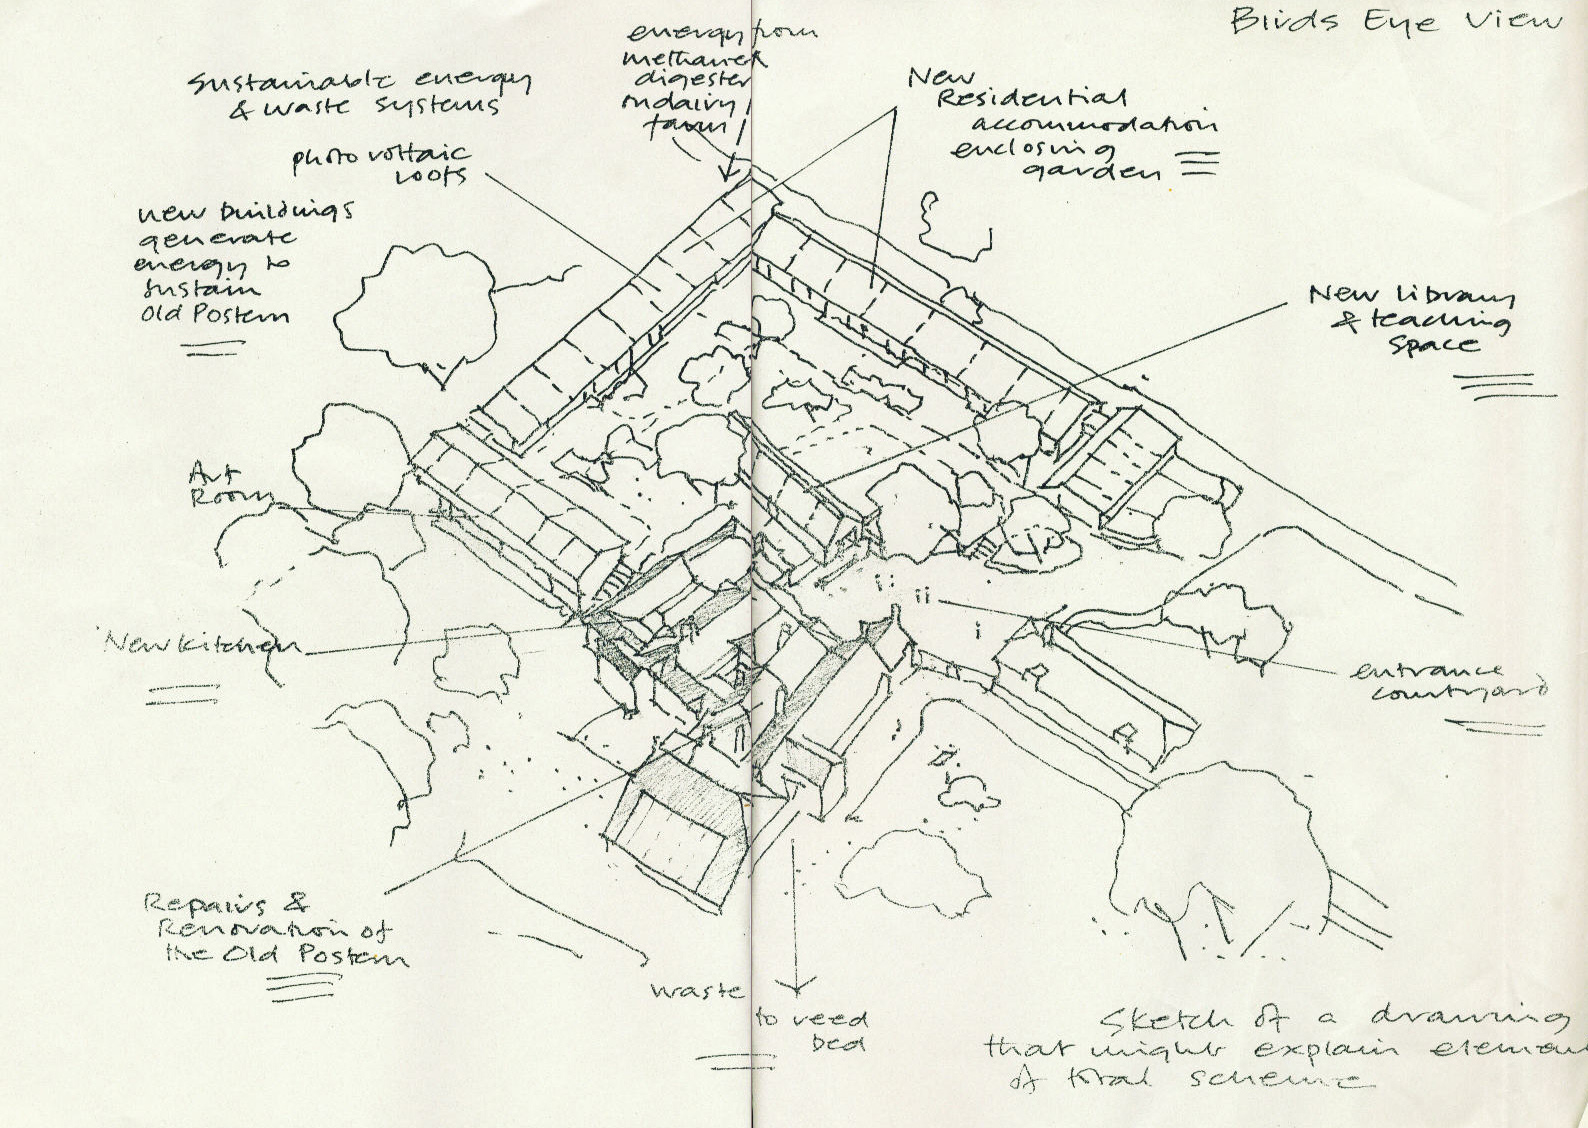 Birds Eye View
energy from
methane
digester
on dairy
farm
Sustainable energy
& waste systems
photo voltaic
roofs
new buildings
generate
energy to
sustain
Old Postern
New
Residential
accommodation
enclosing
garden
New library
& teaching
space
Art
Room
New Kitchen
entrance
courtyard
Repairs &
Renovation of
the Old Postern
waste
to reed
bed
Sketch of a drawing
that might explain elemen
of total scheme